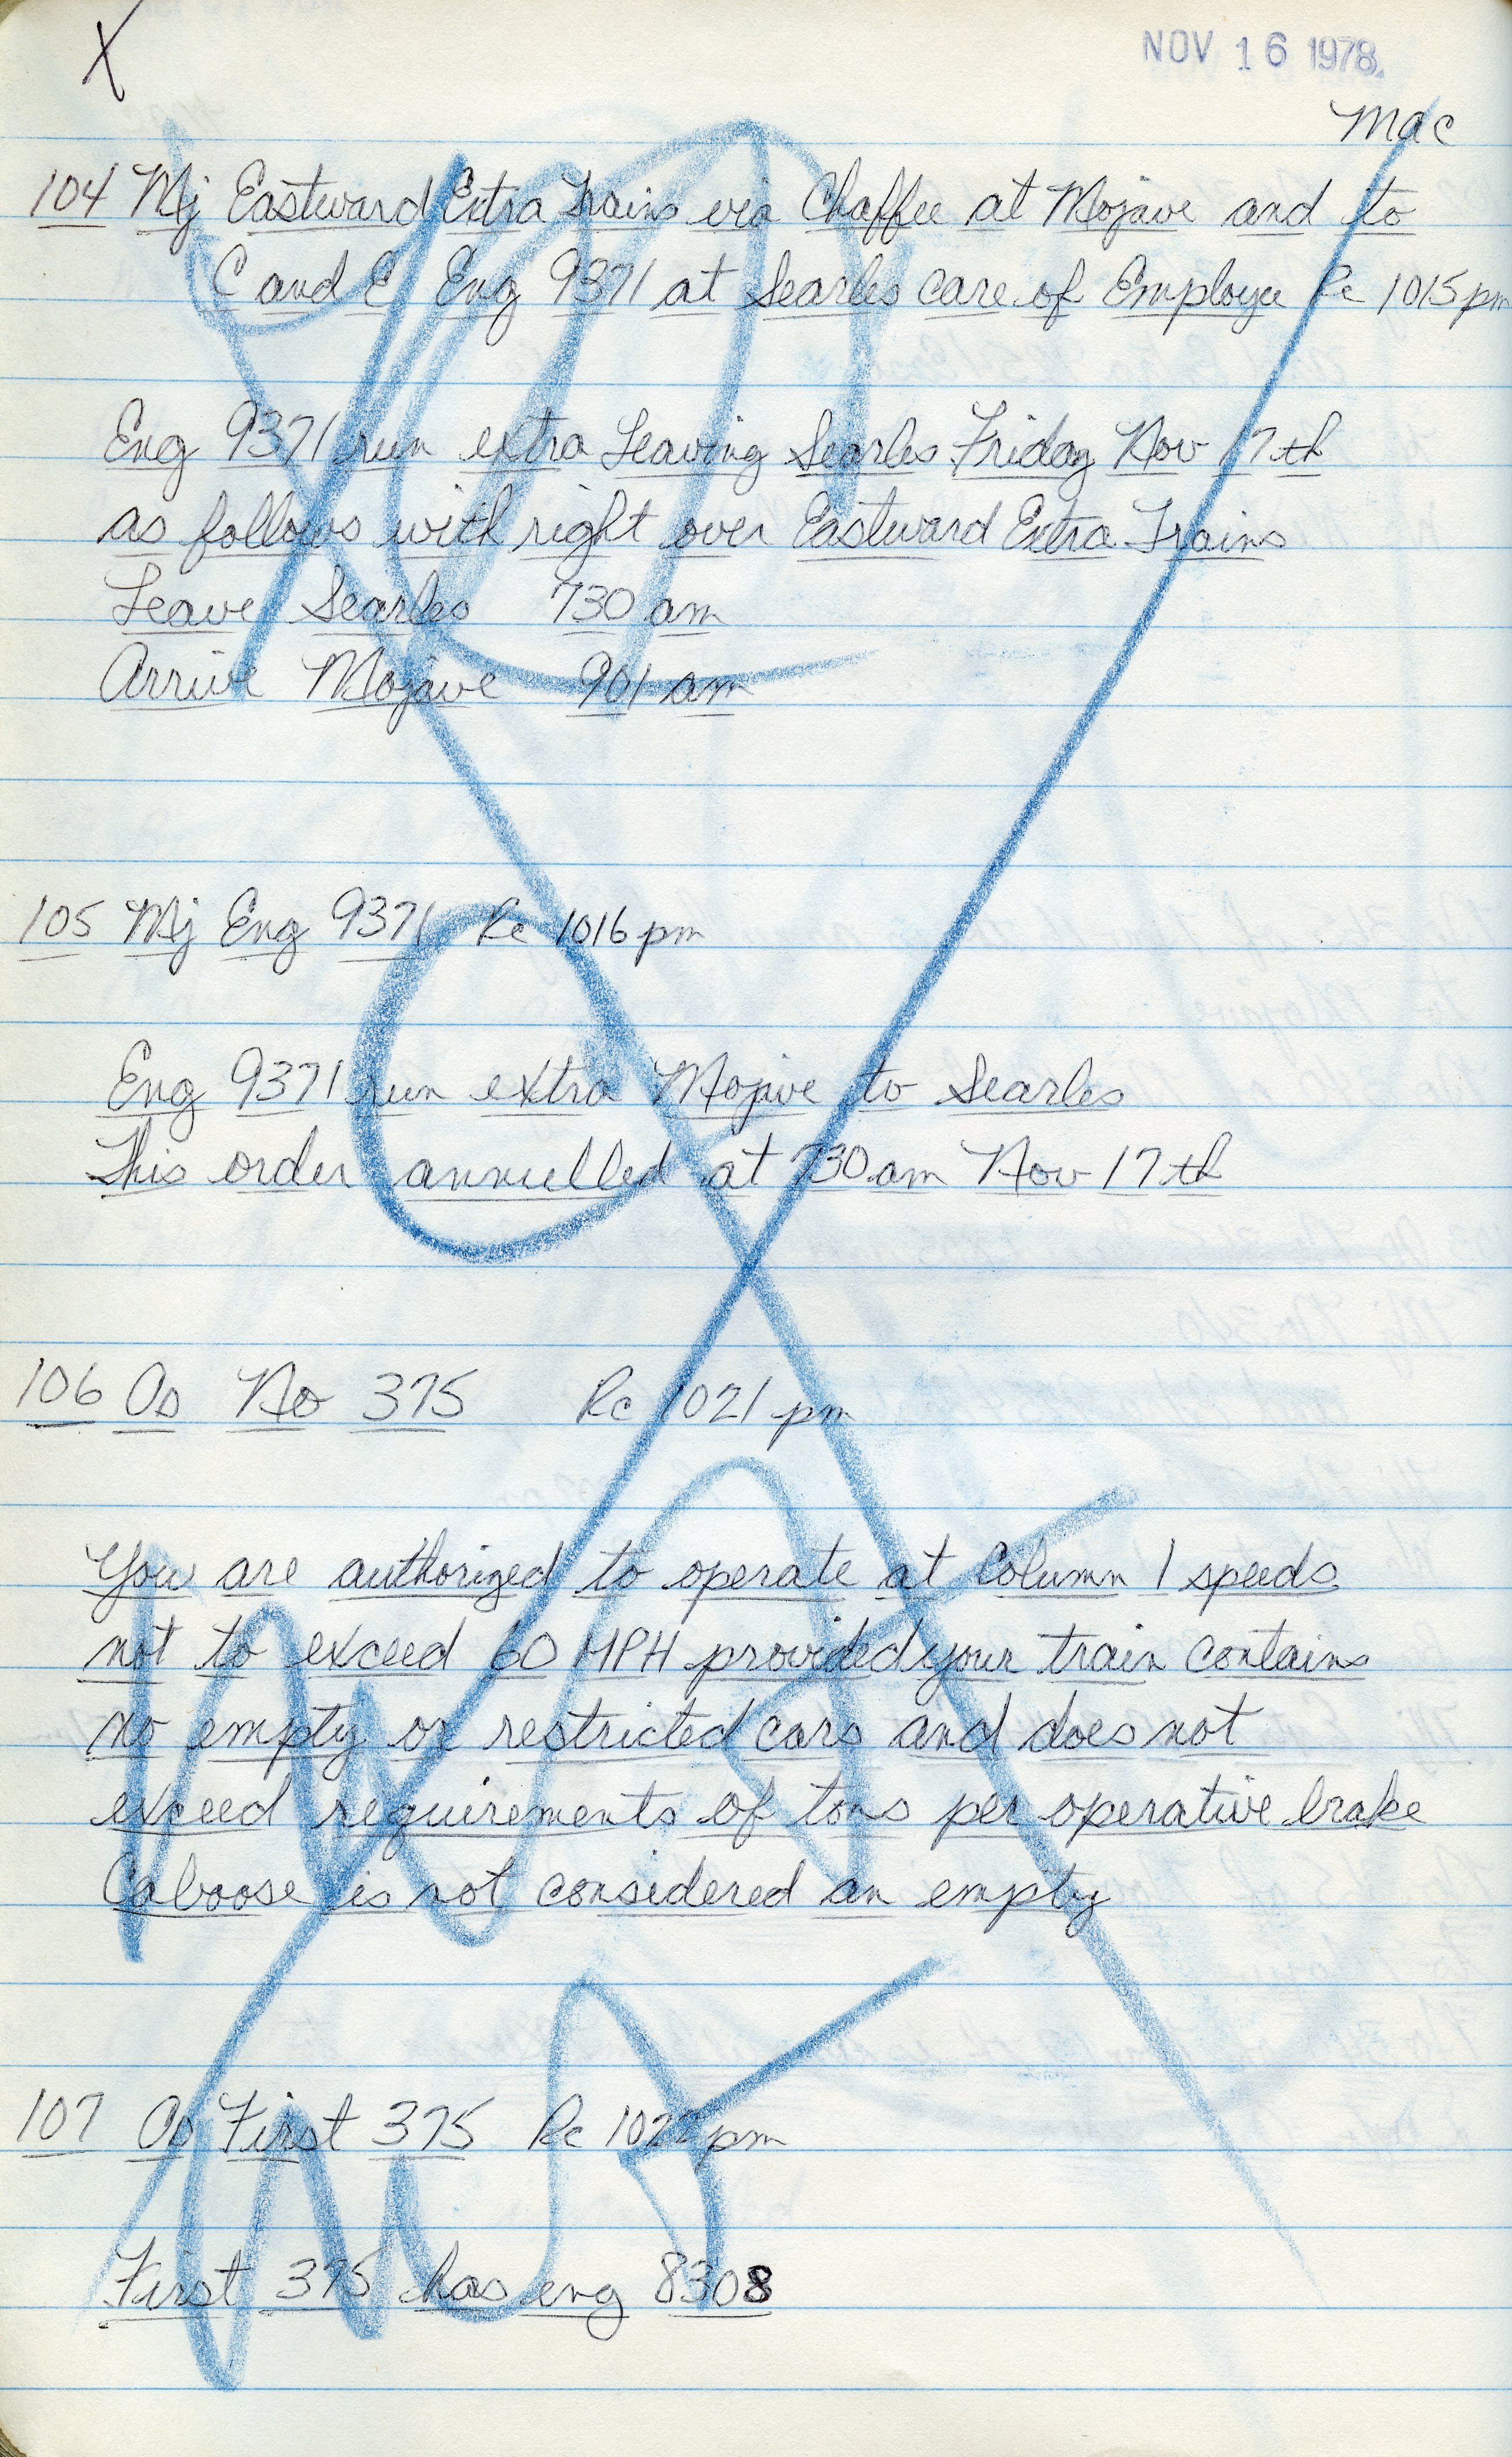 X
NOV 16 1978
Mac
104 Mj Eastward Extra Trains via Chaffee at Mojave and to
C and E Eng 9371 at Searles care of Employee Rc 1015 pm
Eng 9371 run extra Leaving Searles Friday Nov 17th
as follows with right over Eastward Extra Trains
Leave Searles 730 am
Arrive Mojave 901 am
105 Mj Eng 9371 Rc 1016 pm
Eng 9371 run extra Mojave to Searles
This order annulled at 730 am Nov 17th
106 Os No 375 Rc 1021 pm
You are authorized to operate at Column 1 speeds
not to exceed 60 MPH provided your train contains
no empty or restricted cars and does not
exceed requirements of tons per operative brake
Caboose is not considered an empty
107 Os First 375 Rc 1022 pm
First 375 has eng 8308